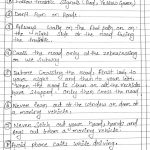 ① Follow traffic Signals (Red, Yellow, Green)
② Don't Run on Roads.
③ Always Walk on the foot path on
the Side of the road facing
the traffic.
④ Cross the road only at the zebra crossing
or subway
⑤ Before Crossing the road, first look to
your right and then to your left.
When the road is clear or all the vehicles
have Stopped, only then cross the
road.
⑥ Never lean out of the window or door of
a moving vehicle.
⑦ Never Stick out your head, hands and
legs out from a moving vehicle.
⑧ Avoid phone calls while driving.